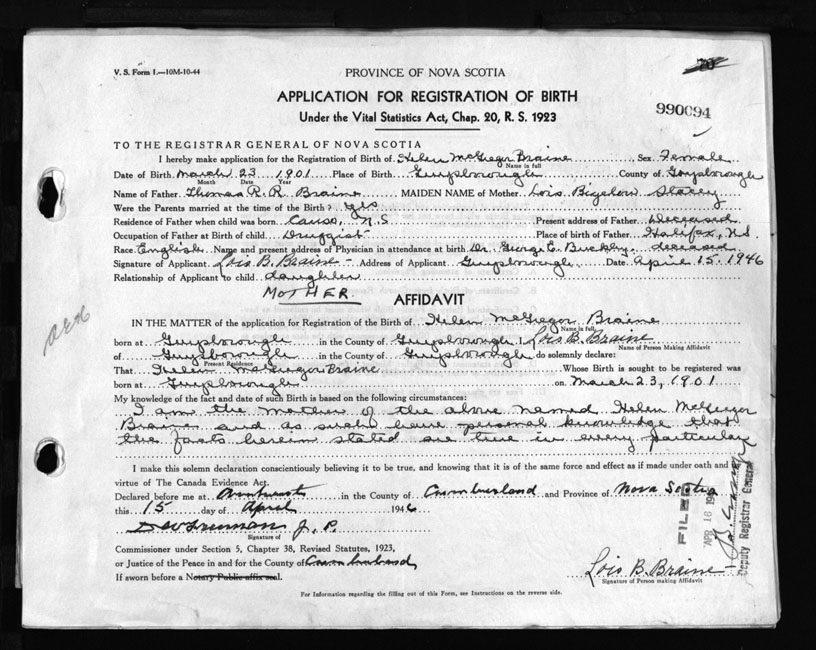 V. S. Form 1.—10M-10-44
PROVINCE OF NOVA SCOTIA
70
APPLICATION FOR REGISTRATION OF BIRTH
990094
Under the Vital Statistics Act, Chap. 20, R. S. 1923
TO THE REGISTRAR GENERAL OF NOVA SCOTIA
I hereby make application for the Registration of Birth of Helen McGregor Braine Sex Female
Name in full
Date of Birth March 23 1901 Place of Birth Guysborough County of Guysborough
Month Date Year
Name of Father Thomas R. R. Braine MAIDEN NAME of Mother Lois Bigelow Stacey
Were the Parents married at the time of the Birth? yes
Residence of Father when child was born Canso, N.S Present address of Father deceased
Occupation of Father at Birth of child Druggist Place of birth of Father Halifax, N.S.
Race English Name and present address of Physician in attendance at birth Dr. George E. Buckley. deceased
Signature of Applicant Lois B. Braine - Address of Applicant Guysborough. Date April 15. 1946
Relationship of Applicant to child daughter
MOTHER.
AFFIDAVIT
IN THE MATTER of the application for Registration of the Birth of Helen McGregor Braine
Name in full
born at Guysborough in the County of Guysborough I, Lois B. Braine
Name of Person Making Affidavit
of Guysborough in the County of Guysborough do solemnly declare:
Present Residence
That Helen McGregor Braine Whose Birth is sought to be registered was
born at Guysborough on March 23, 1901
My knowledge of the fact and date of such Birth is based on the following circumstances:
I am the mother of the above named Helen McGregor
Braine and as such have personal knowledge that
the facts herein stated are true in every particular
I make this solemn declaration conscientiously believing it to be true, and knowing that it is of the same force and effect as if made under oath and by
virtue of The Canada Evidence Act.
Declared before me at Amherst in the County of Cumberland and Province of Nova Scotia
this 15 day of April 1946
J. P.
Signature of
Commissioner under Section 5, Chapter 38, Revised Statutes, 1923,
or Justice of the Peace in and for the County of Cumberland
If sworn before a Notary Public affix seal.
Lois B. Braine
Signature of Person making Affidavit
For Information regarding the filling out of this Form, see Instructions on the reverse side.
FILED
APR 16 194
Deputy Registrar General